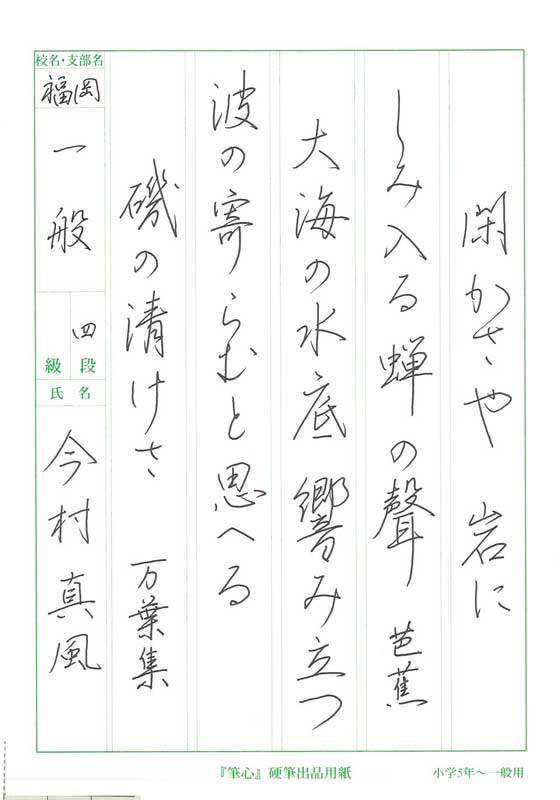 閑かさや 岩に
しみ入る蝉の聲 芭蕉
大海の水底響み立つ
波の寄らむと思へる
磯の清けさ 万葉集
校名・支部名
福岡
一般
四
級 段
氏名
今村真風
『筆心』硬筆出品用紙
小学5年～一般用